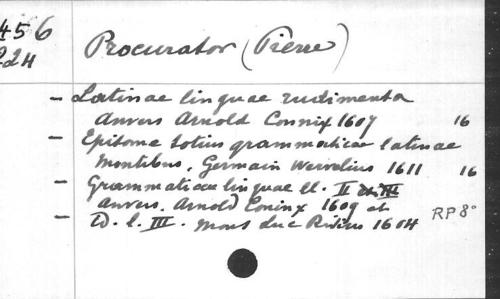 456
224
Procurator (Pierre)
- Latinae linguae rudimenta
Anvers Arnold Connix 1607 16
- Epitome totius grammaticae latinae
Montibus, Germain Wervelius 1611 16
- Grammaticae linguae ll. II et III
Anvers. Arnold Coninx 1609 et
- Id. l. III. Mons Luc Rivius 1604 RP 8°